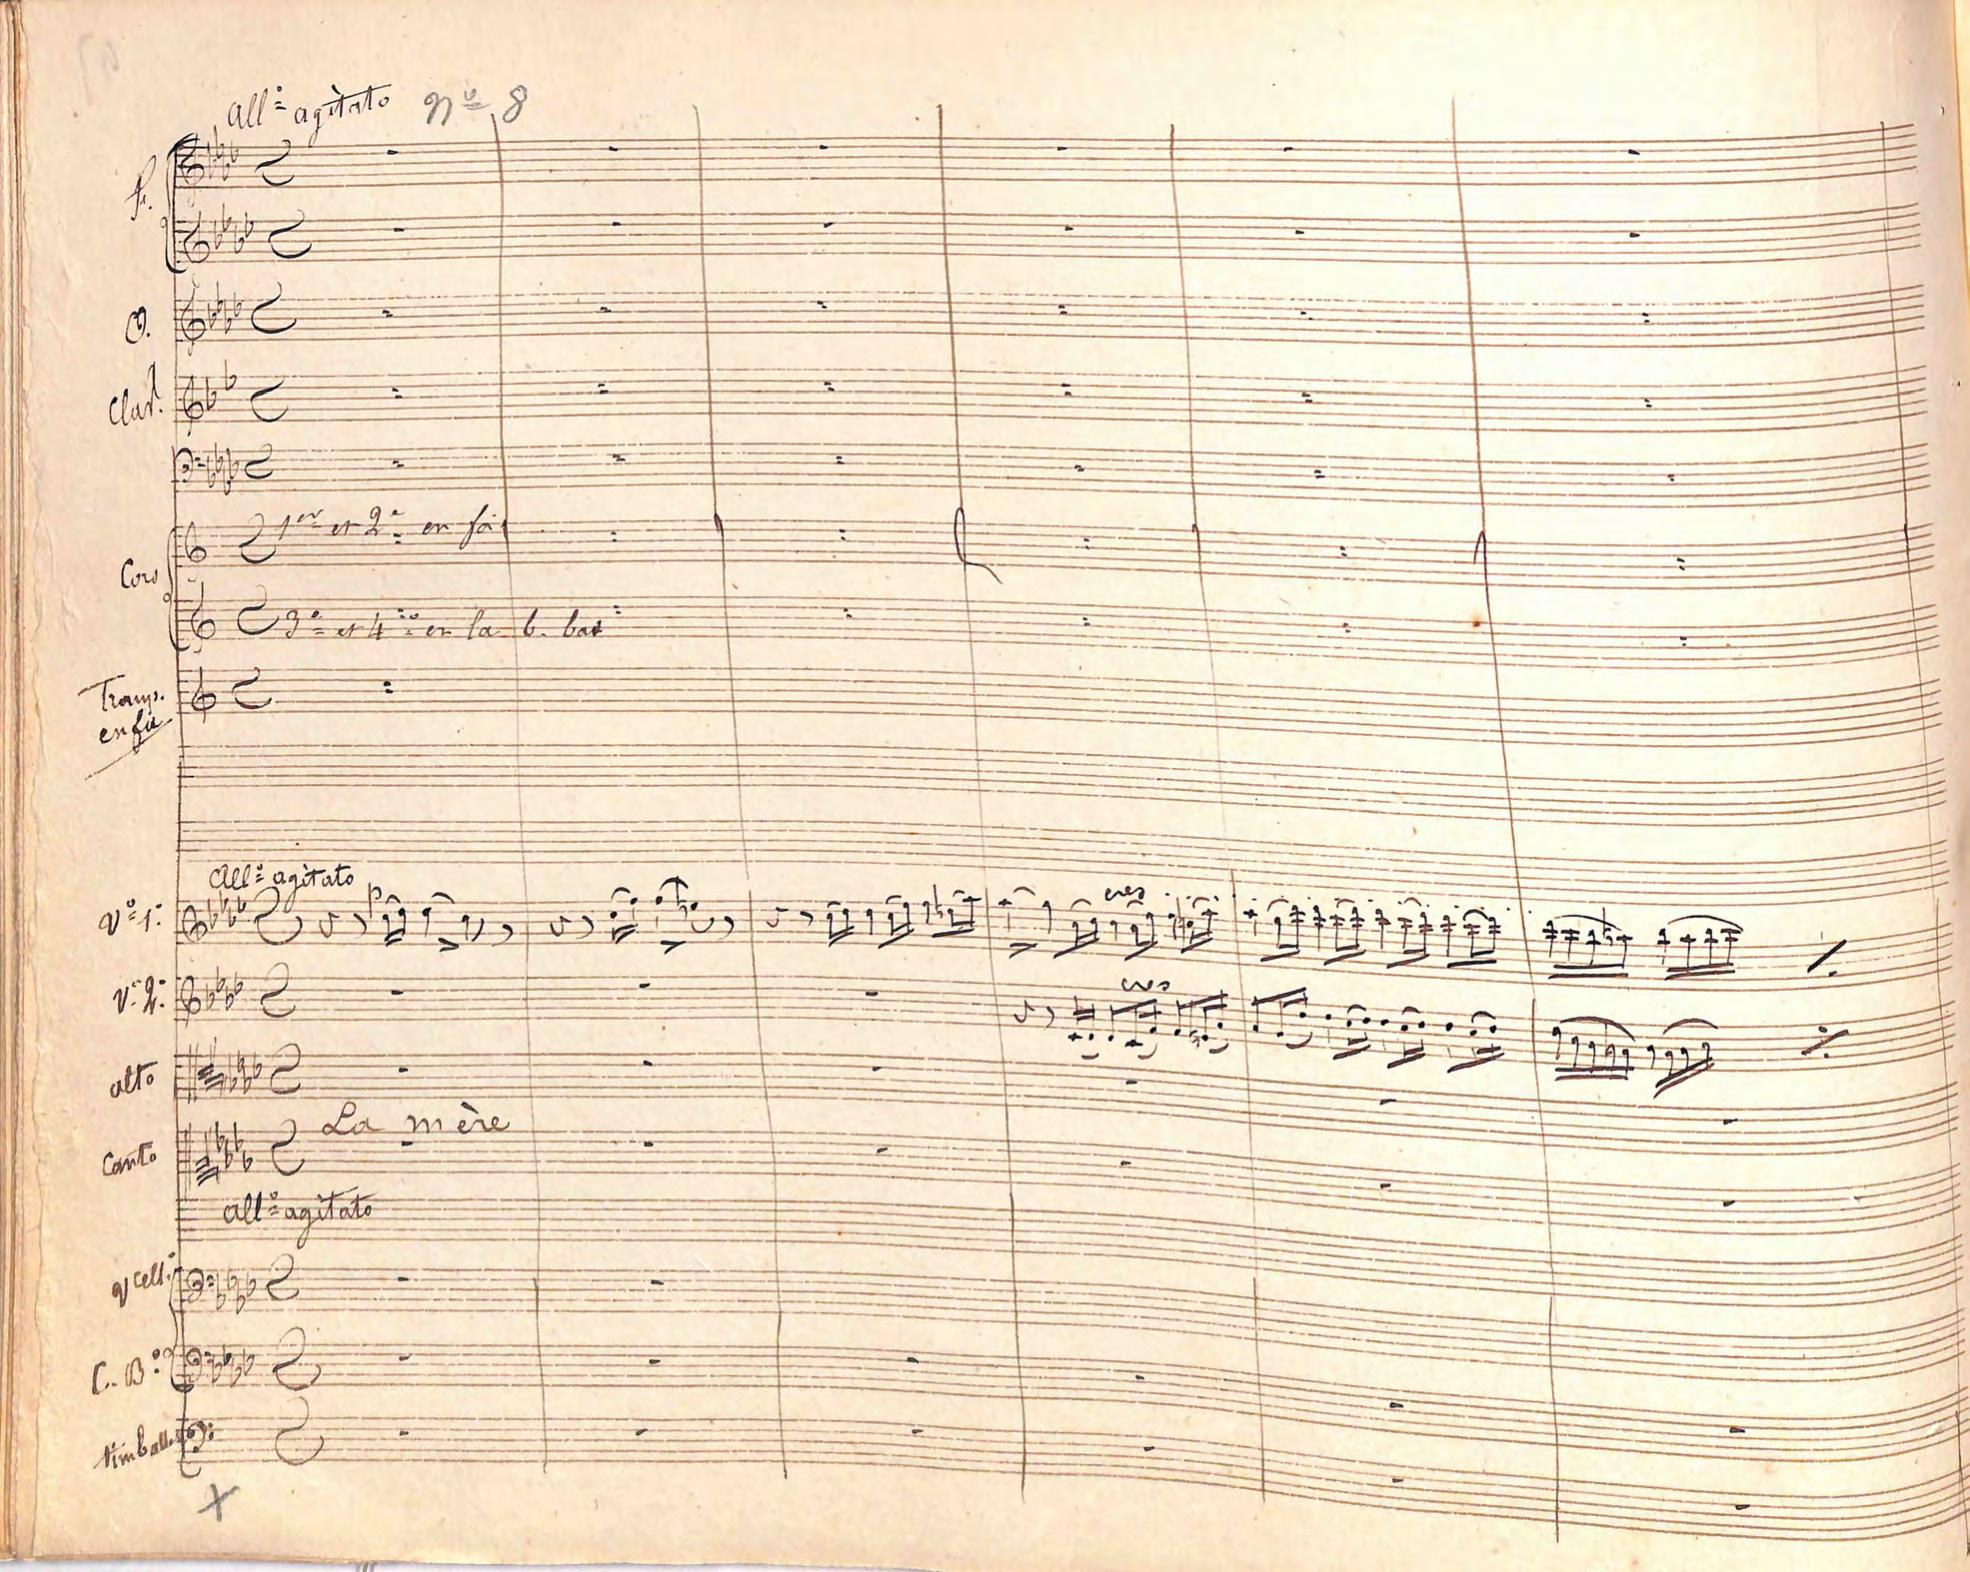 All.º agitato Nº 8
F.
O.
Clar.
Cors
1er et 2e en fa
3e et 4e en la b. bas
Tromp.
en fa
All.º agitato
Vº 1º
p
cres
Vº 2º
cres
alto
Canto
La mère
All.º agitato
Vcell.
C. Bº
timball.